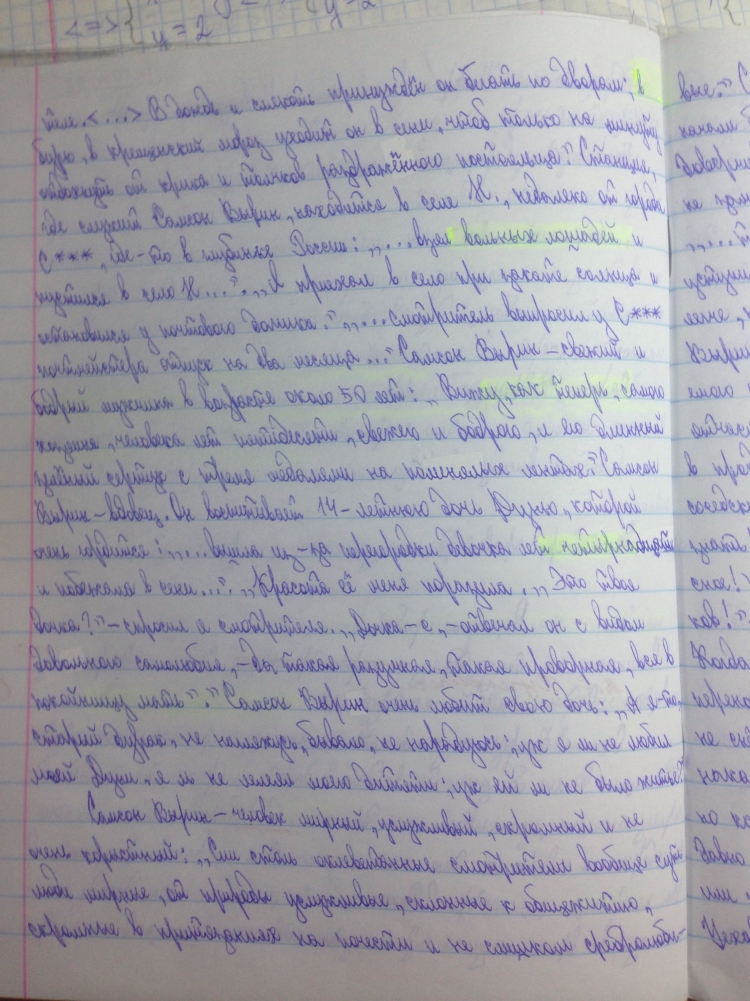 <=> {
y = 2
y = 2
теле. <...> В дождь и слякоть принуждён он бегать по дворам; в
бурю, в крещенский мороз уходит он в сени, чтоб только на минуту
отдохнуть от крика и толчков раздражённого постояльца." Станция,
где служит Самсон Вырин, находится в селе Н., недалеко от города
С***, где-то в глубинке России: „...взял вольных лошадей и
пустился в село Н...". „Я приехал в село при закате солнца и
остановился у почтового домика." „...смотритель выпросил у С***
почтмейстера отпуск на два месяца..." Самсон Вырин – свежий и
бодрый мужчина в возрасте около 50 лет: „Вижу, как теперь, самого
хозяина, человека лет пятидесяти, свежего и бодрого, и его длинный
зелёный сертук с тремя медалями на полинялых лентах." Самсон
Вырин – вдовец. Он воспитывает 14-летнюю дочь Дуню, которой
очень гордится: „...вышла из-за перегородки девочка лет четырнадцати
и побежала в сени...". „Красота её меня поразила. „Это твоя
дочка?" – спросил я смотрителя. „Дочка-с, – отвечал он с видом
довольного самолюбия, – да такая разумная, такая проворная, вся в
покойницу мать"." Самсон Вырин очень любит свою дочь: „А я-то,
старый дурак, не нагляжусь, бывало, не нарадуюсь; уж я ли не любил
моей Дуни, я ль не лелеял моего дитяти; уж ей ли не было житье?"
Самсон Вырин – человек мирный, услужливый, скромный и не
очень корыстный: „Сии столь оклеветанные смотрители вообще суть
люди мирные, от природы услужливые, склонные к общежитию,
скромные в притязаниях на почести и не слишком сребролюби-
вые." С
начали б
не
„...
в
знать
сное!
ков!"
Когда
не
по
давно
или